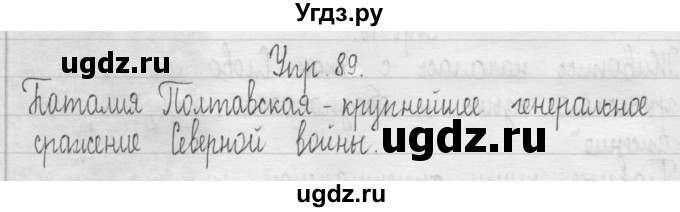 Угдз.ру
Упр. 89.
ugdz.ru
Баталия Полтавская - крупнейшее генеральное
сражение Северной войны.
ugdz.ru
ugdz.ru
ugdz.ru